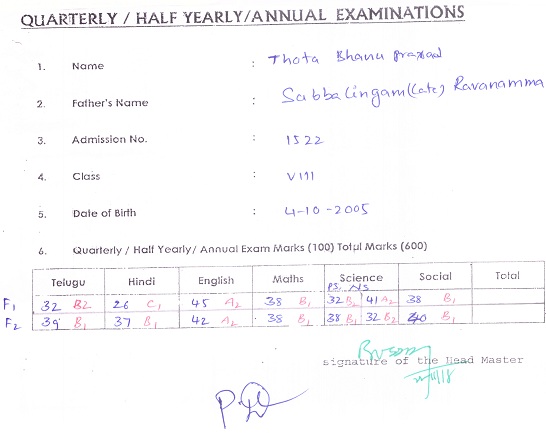 QUARTERLY / HALF YEARLY/ANNUAL EXAMINATIONS
1. Name : Thota Bhanu prasad
2. Father's Name : Sabbalingam (late) Ravanamma
3. Admission No. : 1522
4. Class : VIII
5. Date of Birth : 4-10-2005
6. Quarterly / Half Yearly/ Annual Exam Marks (100) Total Marks (600)
Telugu Hindi English Maths Science Social Total
P.S. N.S
F1 32 B2 26 C1 45 A2 38 B1 32 B2 41 A2 38 B1
F2 39 B1 37 B1 42 A2 38 B1 38 B1 32 B2 40 B1
signature of the Head Master